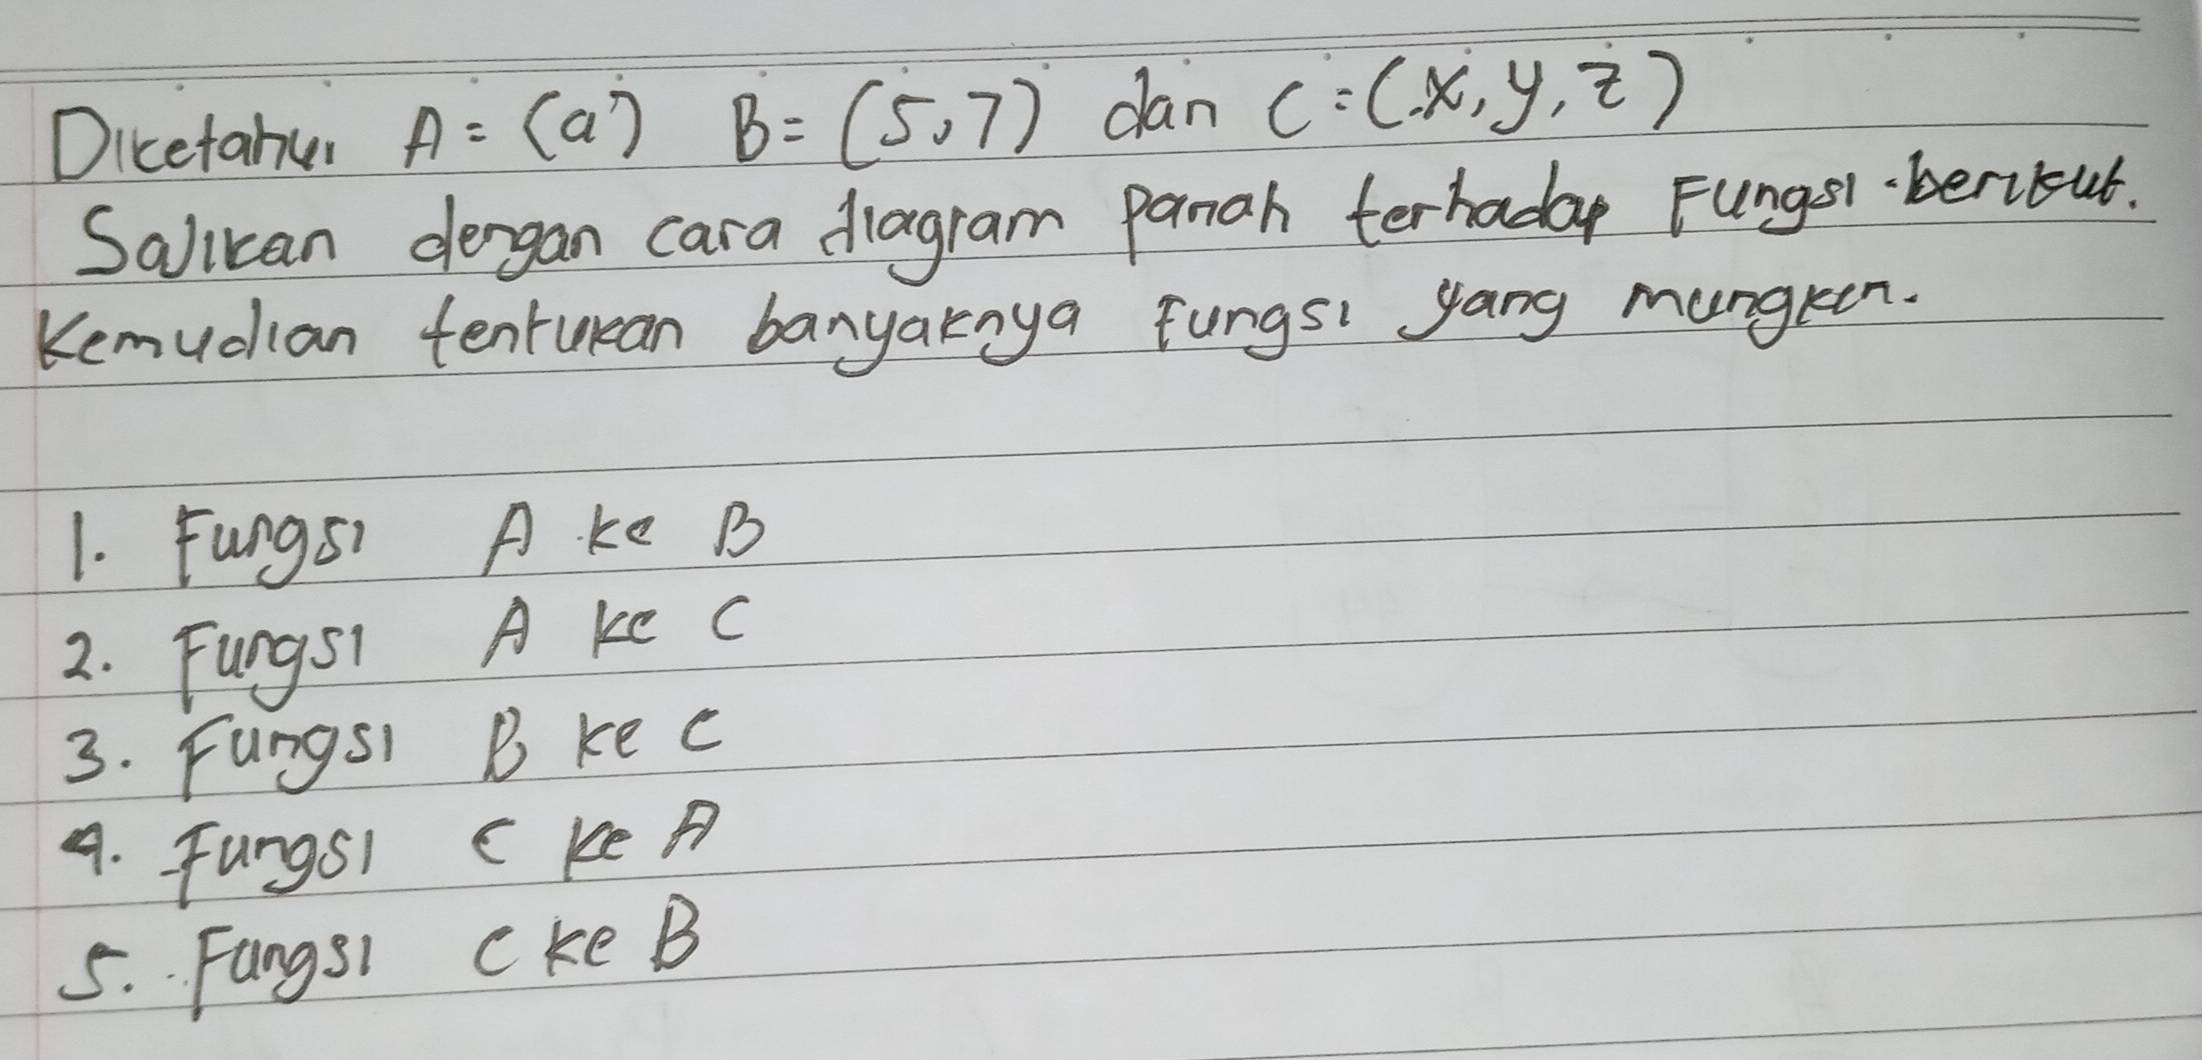 Diketahui A = (a) B = (5,7) dan C = (x, y, z)
Sajikan dengan cara diagram panah terhadap Fungsi berikut.
Kemudian tentukan banyaknya Fungsi yang mungkin.
1. Fungsi A ke B
2. Fungsi A ke C
3. Fungsi B ke C
4. Fungsi C ke A
5. Fungsi C ke B